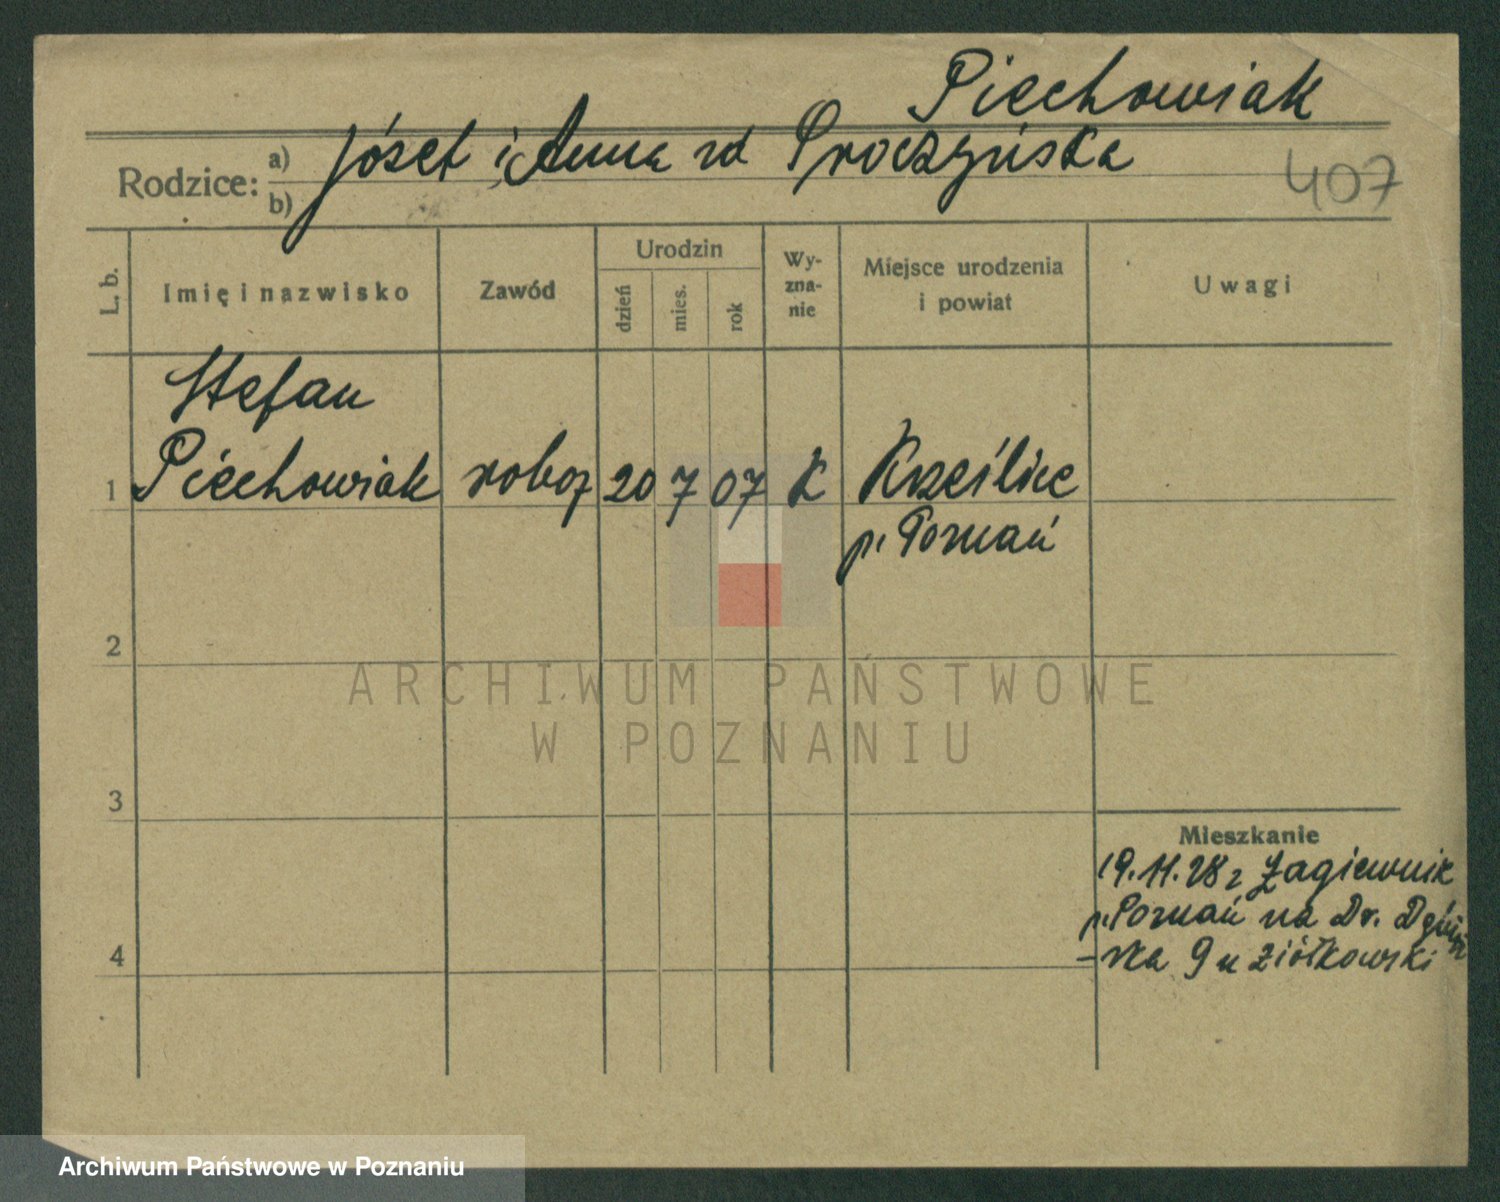 Piechowiak
Rodzice: a) Józef i Anna zd Proczyńska
b)
407
L. b.
Imię i nazwisko
Zawód
Urodzin
dzień
mies.
rok
Wy-
zna-
nie
Miejsce urodzenia
i powiat
Uwagi
Stefan
1 Piechowiak robor 20 7 07 k Krześlice
p. Poznań
2
ARCHIWUM PAŃSTWOWE
W POZNANIU
3
Mieszkanie
19.11.28 z Żagiewnik
p. Poznań na Dr. Dębiń
4
-ska 9 u Ziółkowski
Archiwum Państwowe w Poznaniu